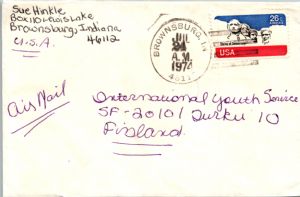 Sue Hinkle
Box 101-Ruis Lake
Brownsburg, Indiana
U.S.A. 46112
BROWNSBURG, IN
A.M.
1974
26c
USA
Air Mail
International Youth Service
SF-20101 Turku 10
Finland.